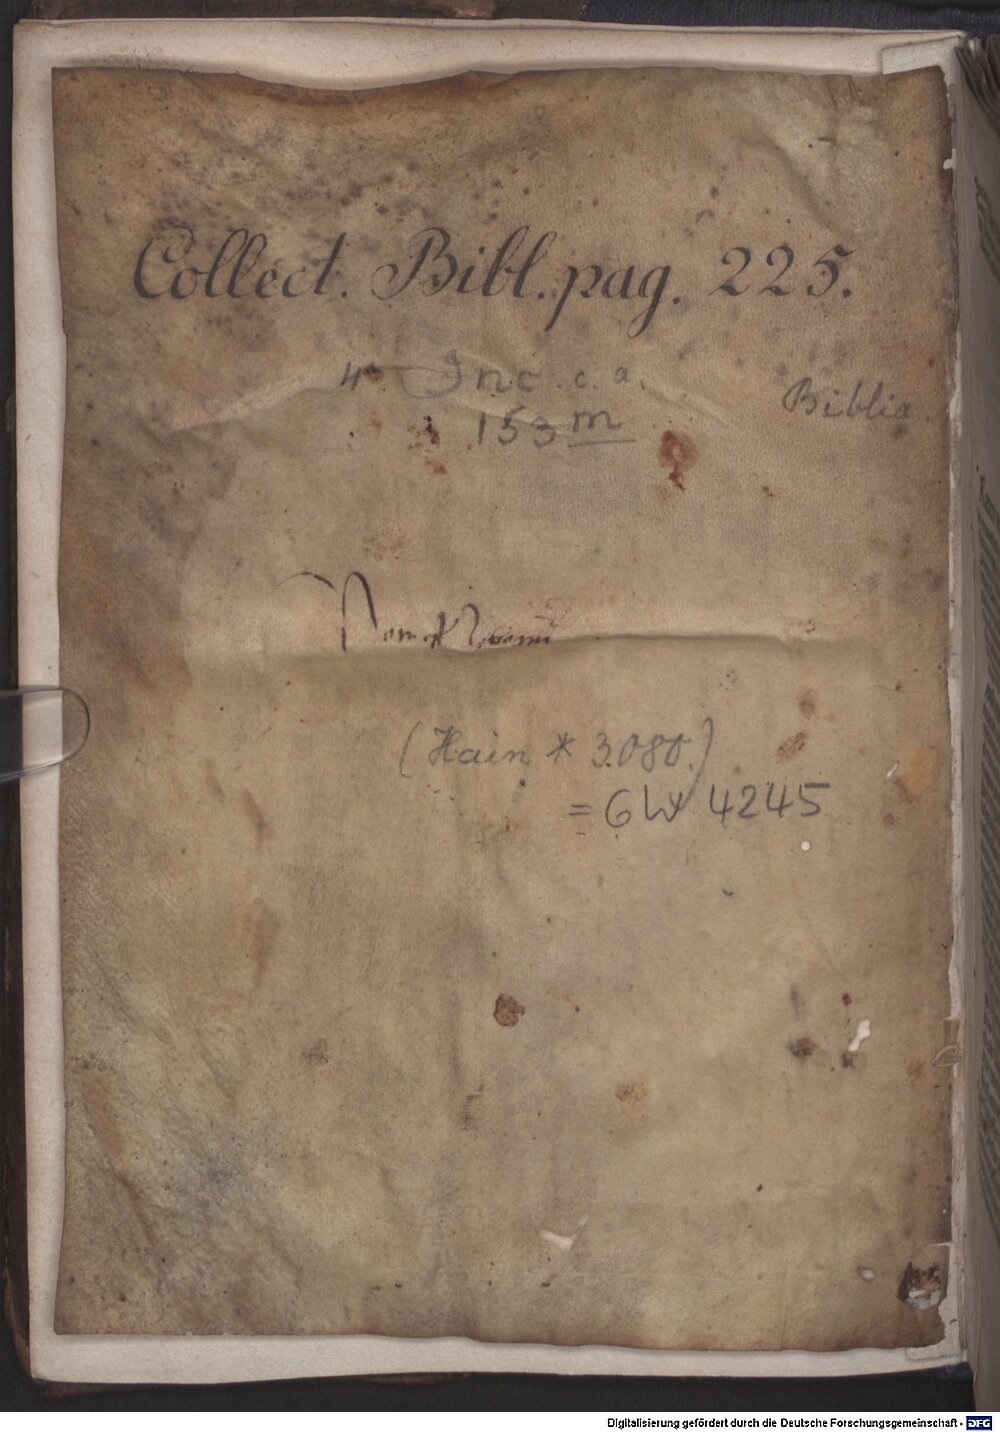 Collect. Bibl. pag. 225.
4° Inc. c. a.
153 m
Biblia
(Hain * 3.080.)
= GW 4245
Digitalisierung gefördert durch die Deutsche Forschungsgemeinschaft - DFG